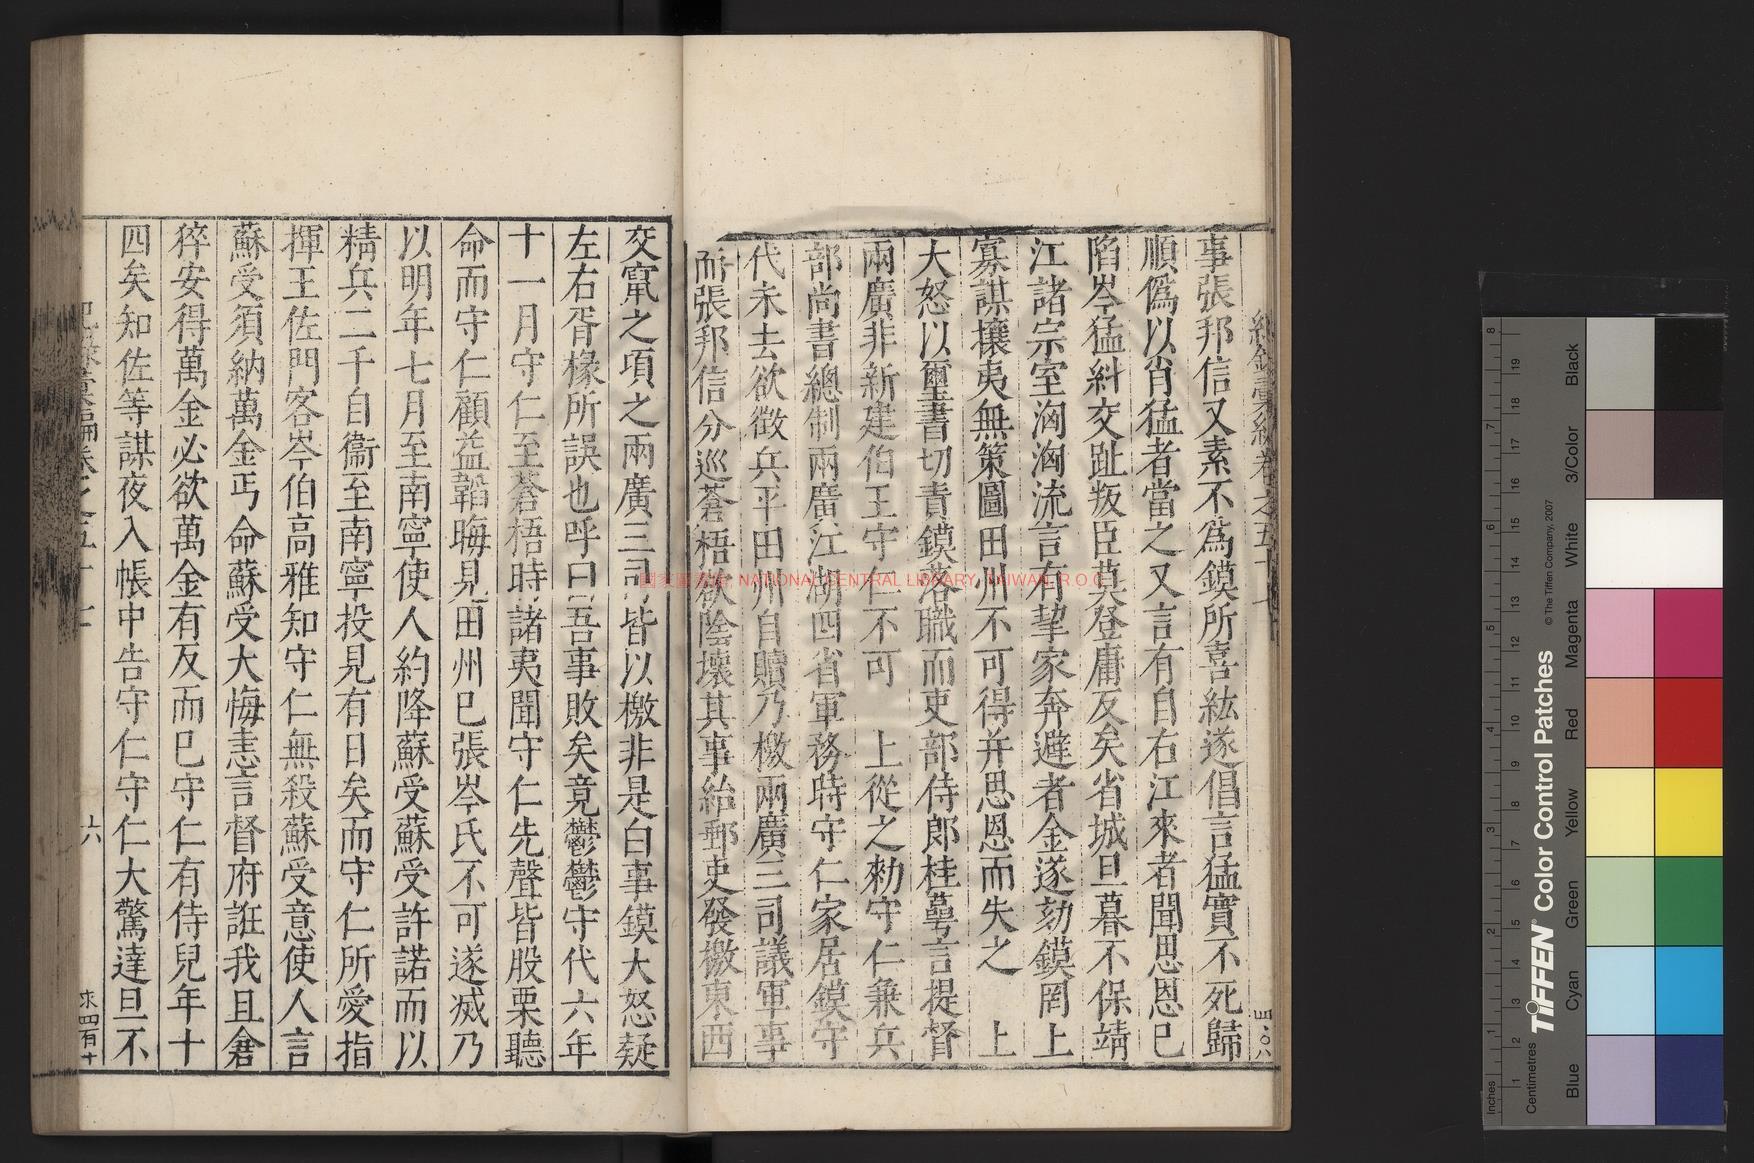 事張邦信又素不為鏌所喜紘遂倡言猛實不死歸
順偽以肖猛者當之又言有自右江來者聞思恩已
陷岑猛糾交趾叛臣莫登庸反矣省城旦暮不保靖
江諸宗室洶洶流言有挈家奔避者金遂劾鏌罔上
寡謀攘夷無策圖田州不可得并思恩而失之 上
大怒以璽書切責鏌落職而吏部侍郎桂萼言提督
兩廣非新建伯王守仁不可 上從之勑守仁兼兵
部尚書總制兩廣江湖四省軍務時守仁家居鏌守
代未去欲徵兵平田州自贖乃檄兩廣三司議軍事
而張邦信分巡蒼梧欲陰壞其事紿郵吏發檄東西
交竄之項之兩廣三司皆以檄非是白事鏌大怒疑
左右胥椽所誤也呼曰吾事敗矣竟鬱鬱守代六年
十一月守仁至蒼梧時諸夷聞守仁先聲皆股栗聽
命而守仁顧益韜晦見田州巳張岑氏不可遂滅乃
以明年七月至南寧使人約降蘇受蘇受許諾而以
精兵二千自衞至南寧投見有日矣而守仁所愛指
揮王佐門客岑伯高雅知守仁無殺蘇受意使人言
蘇受須納萬金丐命蘇受大悔恚言督府誑我且倉
猝安得萬金必欲萬金有反而巳守仁有侍兒年十
四矣知佐等謀夜入帳中告守仁守仁大驚達旦不
十六
國家圖書館 NATIONAL CENTRAL LIBRARY, TAIWAN, R.O.C.
Inches
Centimetres
TIFFEN® Color Control Patches
© The Tiffen Company, 2007
Blue
Cyan
Green
Yellow
Red
Magenta
White
3/Color
Black